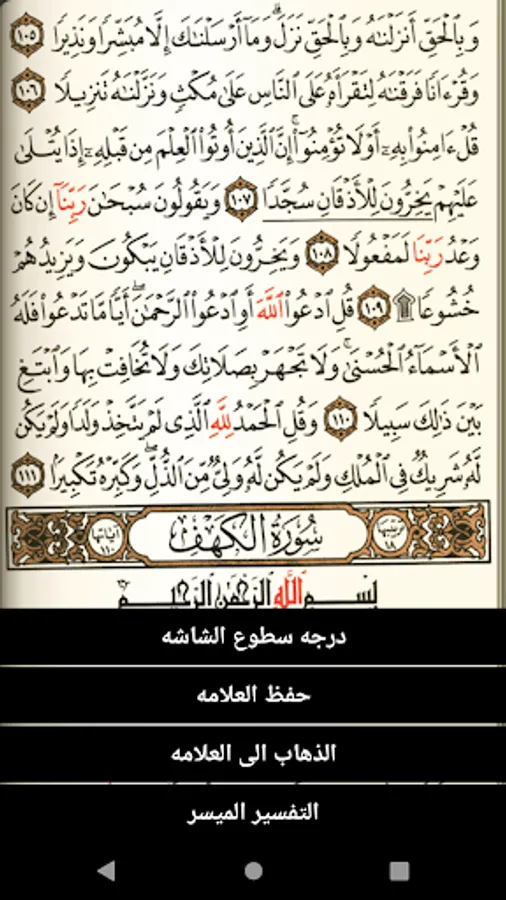 وَبِٱلْحَقِّ أَنزَلْنَٰهُ وَبِٱلْحَقِّ نَزَلَۗ وَمَآ أَرْسَلْنَٰكَ إِلَّا مُبَشِّرًا وَنَذِيرًا ١٠٥
وَقُرْءَانًا فَرَقْنَٰهُ لِتَقْرَأَهُۥ عَلَى ٱلنَّاسِ عَلَىٰ مُكْثٍ وَنَزَّلْنَٰهُ تَنزِيلًا ١٠٦
قُلْ ءَامِنُوا۟ بِهِۦٓ أَوْ لَا تُؤْمِنُوٓا۟ۚ إِنَّ ٱلَّذِينَ أُوتُوا۟ ٱلْعِلْمَ مِن قَبْلِهِۦٓ إِذَا يُتْلَىٰ
عَلَيْهِمْ يَخِرُّونَ لِلْأَذْقَانِ سُجَّدًا ١٠٧ وَيَقُولُونَ سُبْحَٰنَ رَبِّنَآ إِن كَانَ
وَعْدُ رَبِّنَا لَمَفْعُولًا ١٠٨ وَيَخِرُّونَ لِلْأَذْقَانِ يَبْكُونَ وَيَزِيدُهُمْ
خُشُوعًا ۩ ١٠٩ قُلِ ٱدْعُوا۟ ٱللَّهَ أَوِ ٱدْعُوا۟ ٱلرَّحْمَٰنَۖ أَيًّا مَّا تَدْعُوا۟ فَلَهُ
ٱلْأَسْمَآءُ ٱلْحُسْنَىٰۚ وَلَا تَجْهَرْ بِصَلَاتِكَ وَلَا تُخَافِتْ بِهَا وَٱبْتَغِ
بَيْنَ ذَٰلِكَ سَبِيلًا ١١٠ وَقُلِ ٱلْحَمْدُ لِلَّهِ ٱلَّذِى لَمْ يَتَّخِذْ وَلَدًا وَلَمْ يَكُن
لَّهُۥ شَرِيكٌ فِى ٱلْمُلْكِ وَلَمْ يَكُن لَّهُۥ وَلِىٌّ مِّنَ ٱلذُّلِّۖ وَكَبِّرْهُ تَكْبِيرًا ١١١
ترتيبها ١٨ سُورَةُ الكَهْفِ آياتها ١١٠
بِسْمِ ٱللَّهِ ٱلرَّحْمَٰنِ ٱلرَّحِيمِ
درجه سطوع الشاشه
حفظ العلامه
الذهاب الى العلامه
التفسير الميسر